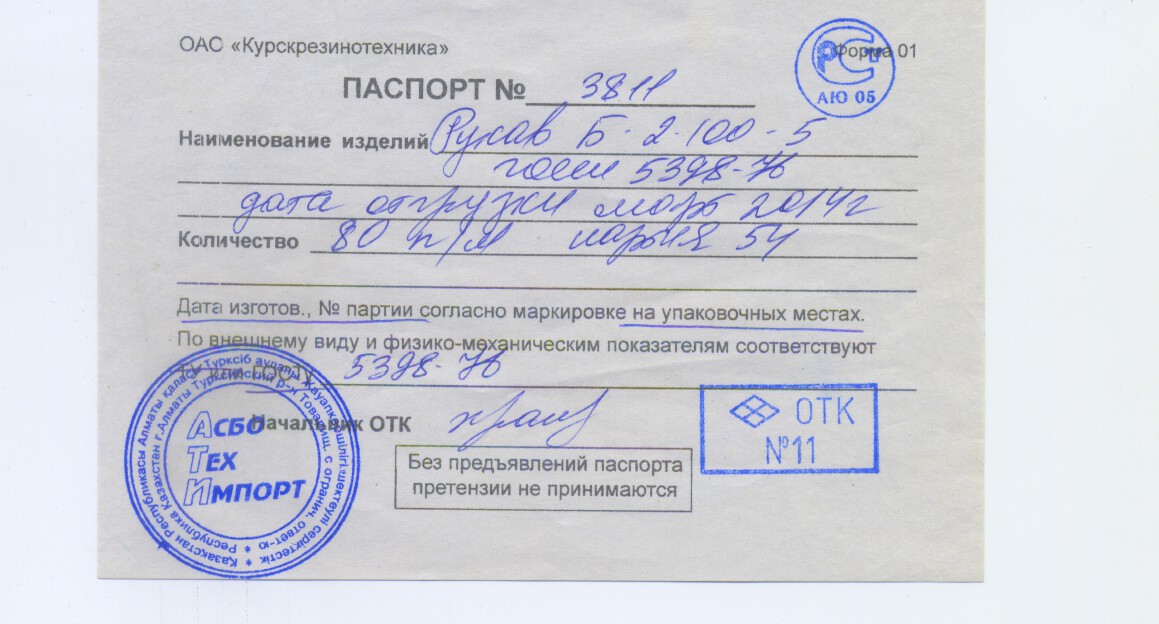 ОАО «Курскрезинотехника»
Форма 01
РСТ
АЮ 05
ПАСПОРТ № 3811
Наименование изделий Рукав Б-2-100-5
гост 5398-76
дата отгрузки март 2014г
Количество 80 п/м партия 54
Дата изготов., № партии согласно маркировке на упаковочных местах.
По внешнему виду и физико-механическим показателям соответствуют
ТУ или ГОСТу 5398-76
Начальник ОТК
ОТК
№11
Без предъявлений паспорта
претензии не принимаются
Қазақстан Республикасы Алматы қаласы Турксіб ауданы Жауапкершілігі шектеулі серіктестік
Республика Казахстан г.Алматы Турксибский р-н Товарищ. с огранич. ответ-ю
АСБО
ТЕХ
ИМПОРТ